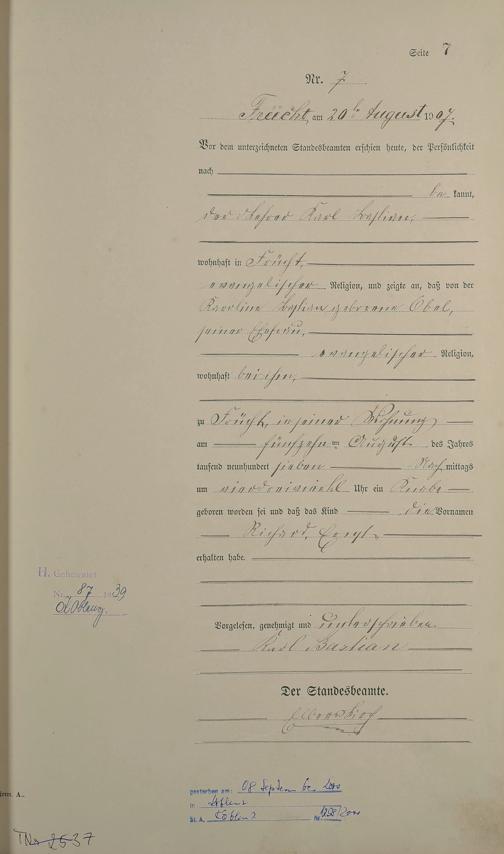 Seite 7
Nr. 7
Frücht, am 20ten August 1907.
Vor dem unterzeichneten Standesbeamten erschien heute, der Persönlichkeit
nach
be kannt,
der Lehrer Karl Bastian,
wohnhaft in Frücht,
evangelischer Religion, und zeigte an, daß von der
Karoline Bastian geborene Obel,
seiner Ehefrau,
evangelischer Religion,
wohnhaft bei ihm,
zu Frücht, in seiner Wohnung
am fünfzehnten August des Jahres
tausend neunhundert sieben Nach mittags
um Uhr ein Knabe
geboren worden sei und daß das Kind die Vornamen
Richard,
erhalten habe.
H. Geheiratet
Nr. 87 1939
Vorgelesen, genehmigt und unterschrieben.
Karl Bastian
Der Standesbeamte.
gestorben am: 08 September 2000
in Koblenz
St. A. Koblenz Nr.